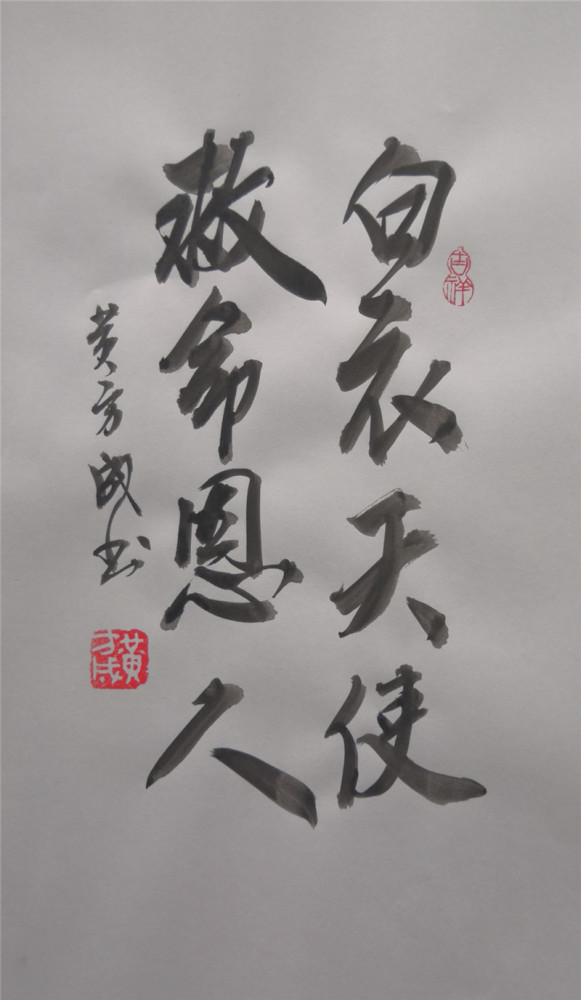 白衣天使
吉祥
救命恩人
黄方成书
黄方成